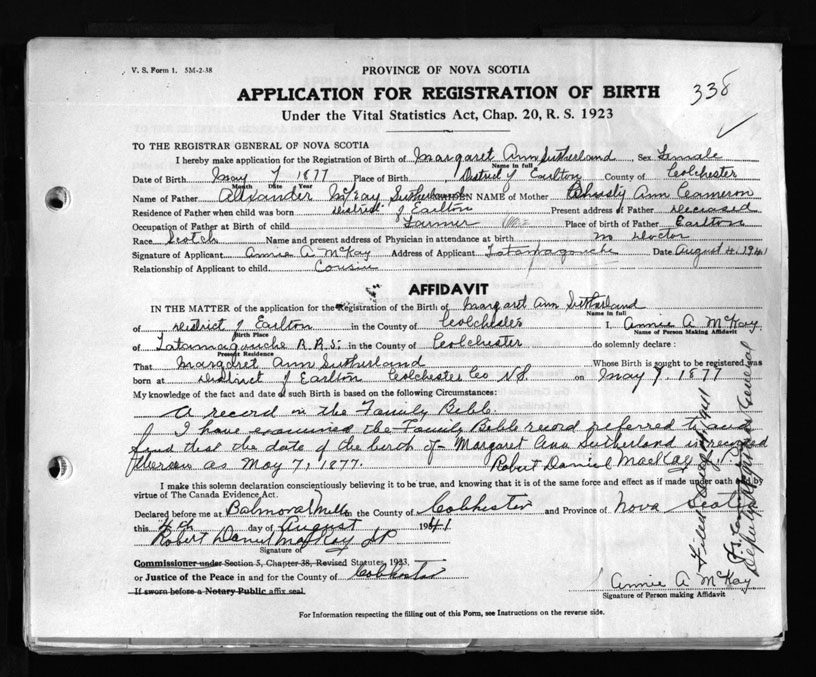 V. S. Form 1. 5M-2-38
PROVINCE OF NOVA SCOTIA
338
APPLICATION FOR REGISTRATION OF BIRTH
Under the Vital Statistics Act, Chap. 20, R. S. 1923
TO THE REGISTRAR GENERAL OF NOVA SCOTIA
I hereby make application for the Registration of Birth of Margaret Ann Sutherland Sex Female
Name in full
Date of Birth May 7 1877 Place of Birth District of Earlton County of Colchester
Month Date Year
Name of Father Alexander McKay Sutherland MAIDEN NAME of Mother Ann Cameron
Residence of Father when child was born District of Earlton Present address of Father Deceased
Occupation of Father at Birth of child Farmer Place of birth of Father Earlton
Race Scotch Name and present address of Physician in attendance at birth no Doctor
Signature of Applicant Annie A McKay Address of Applicant Tatamagouche Date August 4, 1941
Relationship of Applicant to child. Cousin
AFFIDAVIT
IN THE MATTER of the application for the Registration of the Birth of Margaret Ann Sutherland
Name in full
of District of Earlton in the County of Colchester I, Annie A McKay
Birth Place Name of Person Making Affidavit
of Tatamagouche R.R.5. in the County of Colchester do solemnly declare :
Present Residence
That Margaret Ann Sutherland Whose Birth is sought to be registered was
born at District of Earlton Colchester Co N.S. on May 7, 1877
My knowledge of the fact and date of such Birth is based on the following Circumstances:
A record in the Family Bible.
I have examined the Family Bible record referred to and
find that the date of the birth of Margaret Ann Sutherland is recorded
thereon as May 7, 1877. Robert Daniel MacKay J.P.
I make this solemn declaration conscientiously believing it to be true, and knowing that it is of the same force and effect as if made under oath by
virtue of The Canada Evidence Act.
Declared before me at Balmoral Mills in the County of Colchester and Province of Nova Scotia
this 4th day of August 1941
Robert Daniel MacKay JP
Signature of
Commissioner under Section 5, Chapter 38, Revised Statutes 1923,
or Justice of the Peace in and for the County of Colchester
If sworn before a Notary Public affix seal.
Annie A McKay
Signature of Person making Affidavit
Deputy Registrar General
For Information respecting the filling out of this Form, see Instructions on the reverse side.